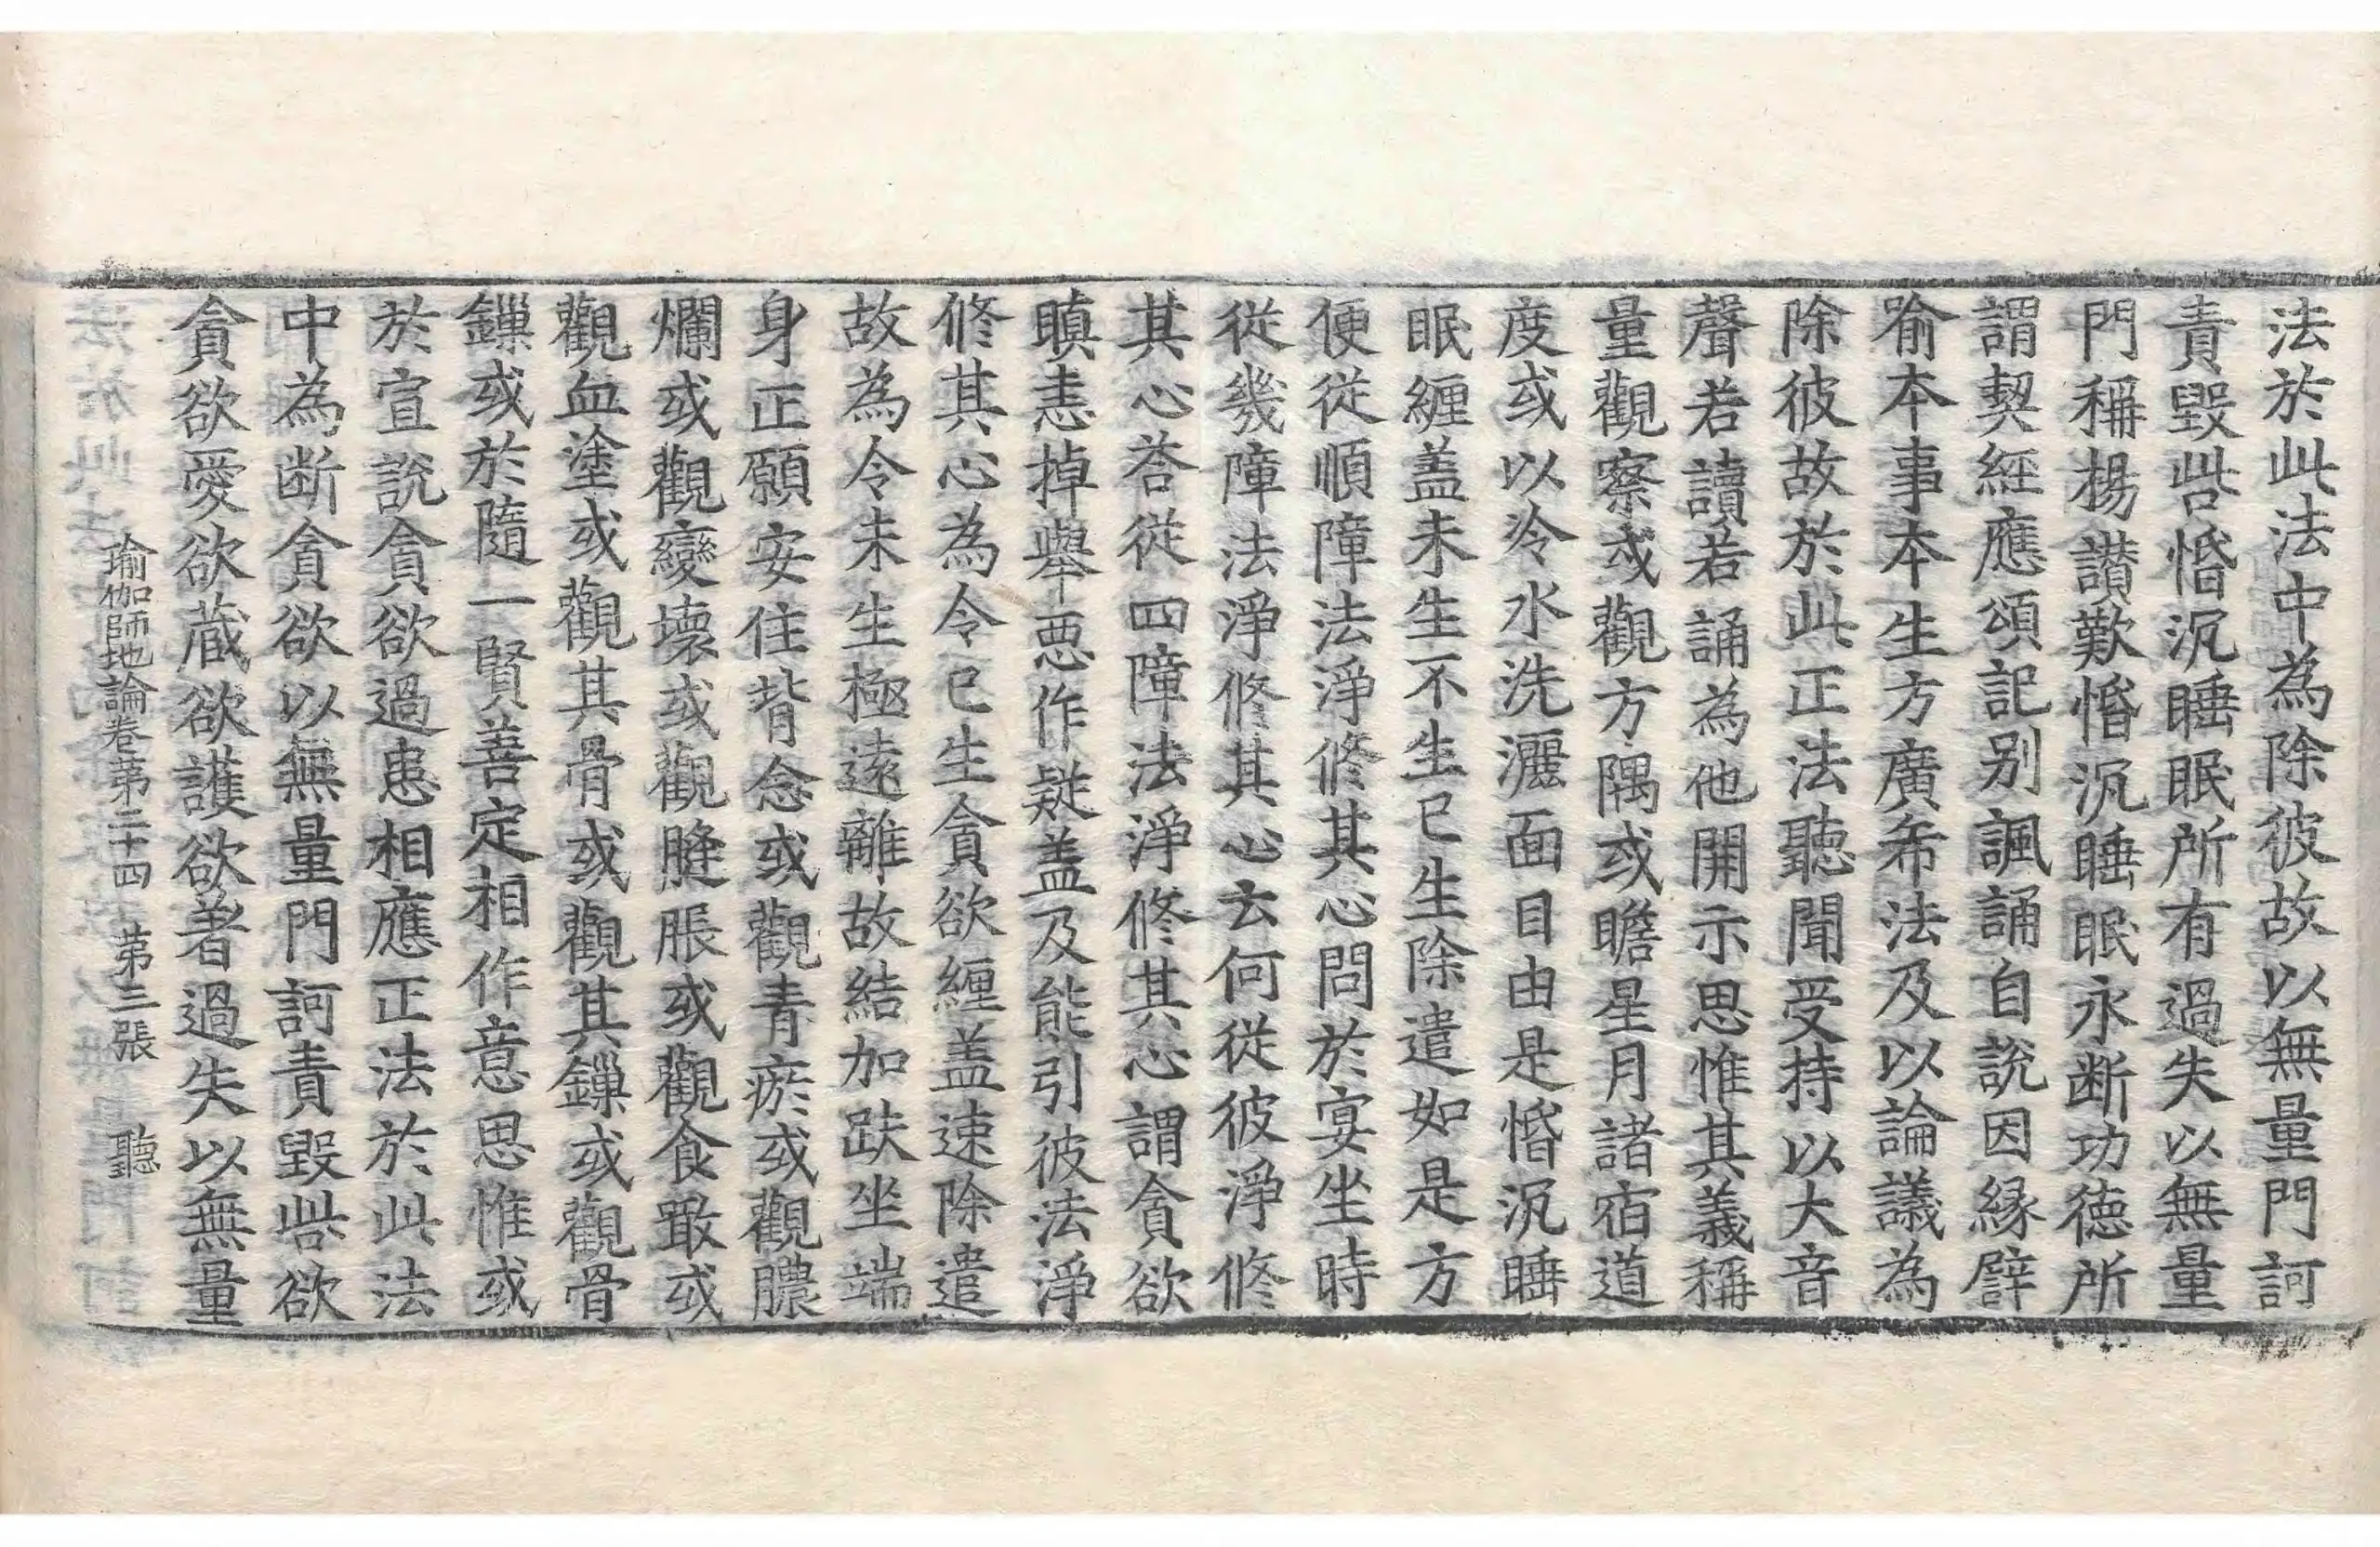 法於此法中為除彼故以無量門訶
責毀呰惛沉睡眠所有過失以無量
門稱揚讃歎惛沉睡眠永断功德所
謂契經應頌記别諷誦自說因緣譬
喻本事本生方廣希法及以論議為
除彼故於此正法聽聞受持以大音
聲若讀若誦為他開示思惟其義稱
量觀察或觀方隅或瞻星月諸宿道
度或以冷水洗灑面目由是惛沉睡
眠纏盖未生不生已生除遣如是方
便從順障法淨修其心問於宴坐時
從幾障法淨修其心云何從彼淨修
其心荅從四障法淨修其心謂貪欲
瞋恚掉舉惡作疑盖及能引彼法淨
修其心為令已生貪欲纏盖速除遣
故為令未生極遠離故結加趺坐端
身正願安住背念或觀青瘀或觀膿
爛或觀變壞或觀膖脹或觀食噉或
觀血塗或觀其骨或觀其鏁或觀骨
鏁或於隨一賢善定相作意思惟或
於宣說貪欲過患相應正法於此法
中為断貪欲以無量門訶責毀呰欲
貪欲愛欲蔵欲護欲著過失以無量
瑜伽師地論卷第二十四 第三張 聽